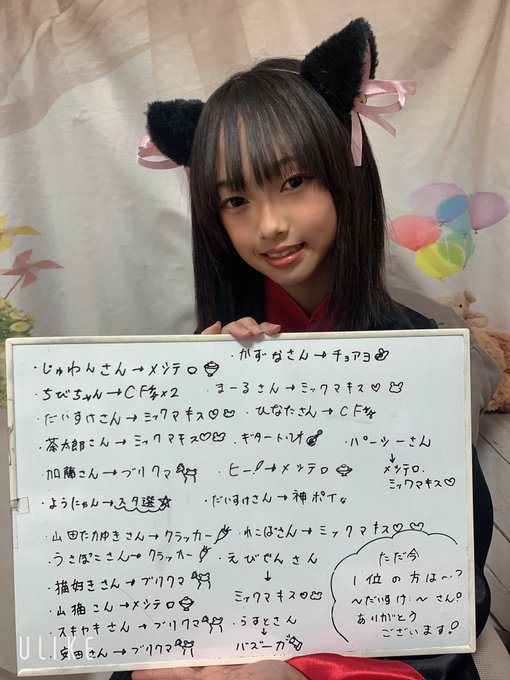 ・じゅわんさん→メシテロ
・かずなさん→チョアヨ
・ちびちゃん→CF
×2
・まーるさん→ミックマキス♡
・だいすけさん→ミックマキス♡
・ひなたさん→CF
・茶太郎さん→ミックマキス♡
・ギタートリオ
・パーシーさん
↓
メシテロ.
ミックマキス♡
・加藤さん→ブリクマ
・ヒー!→メシテロ
・ようにゃん→スタ選☆
・だいすけさん→神ポイ
・山田たかゆきさん→クラッカー
・れこぱさん→ミックマキス♡♡
・うさぽこさん→クラッカー
・えびせんさん
↓
ミックマキス♡
・猫好きさん→ブリクマ
・山猫さん→メシテロ
・スキヤキさん→ブリクマ
・うすとさん
↓
バズーカ
・安田さん→ブリクマ
ただ今
1位の方は〜?
〜だいすけ:〜さん!
ありがとう
ございます!
ULIKE